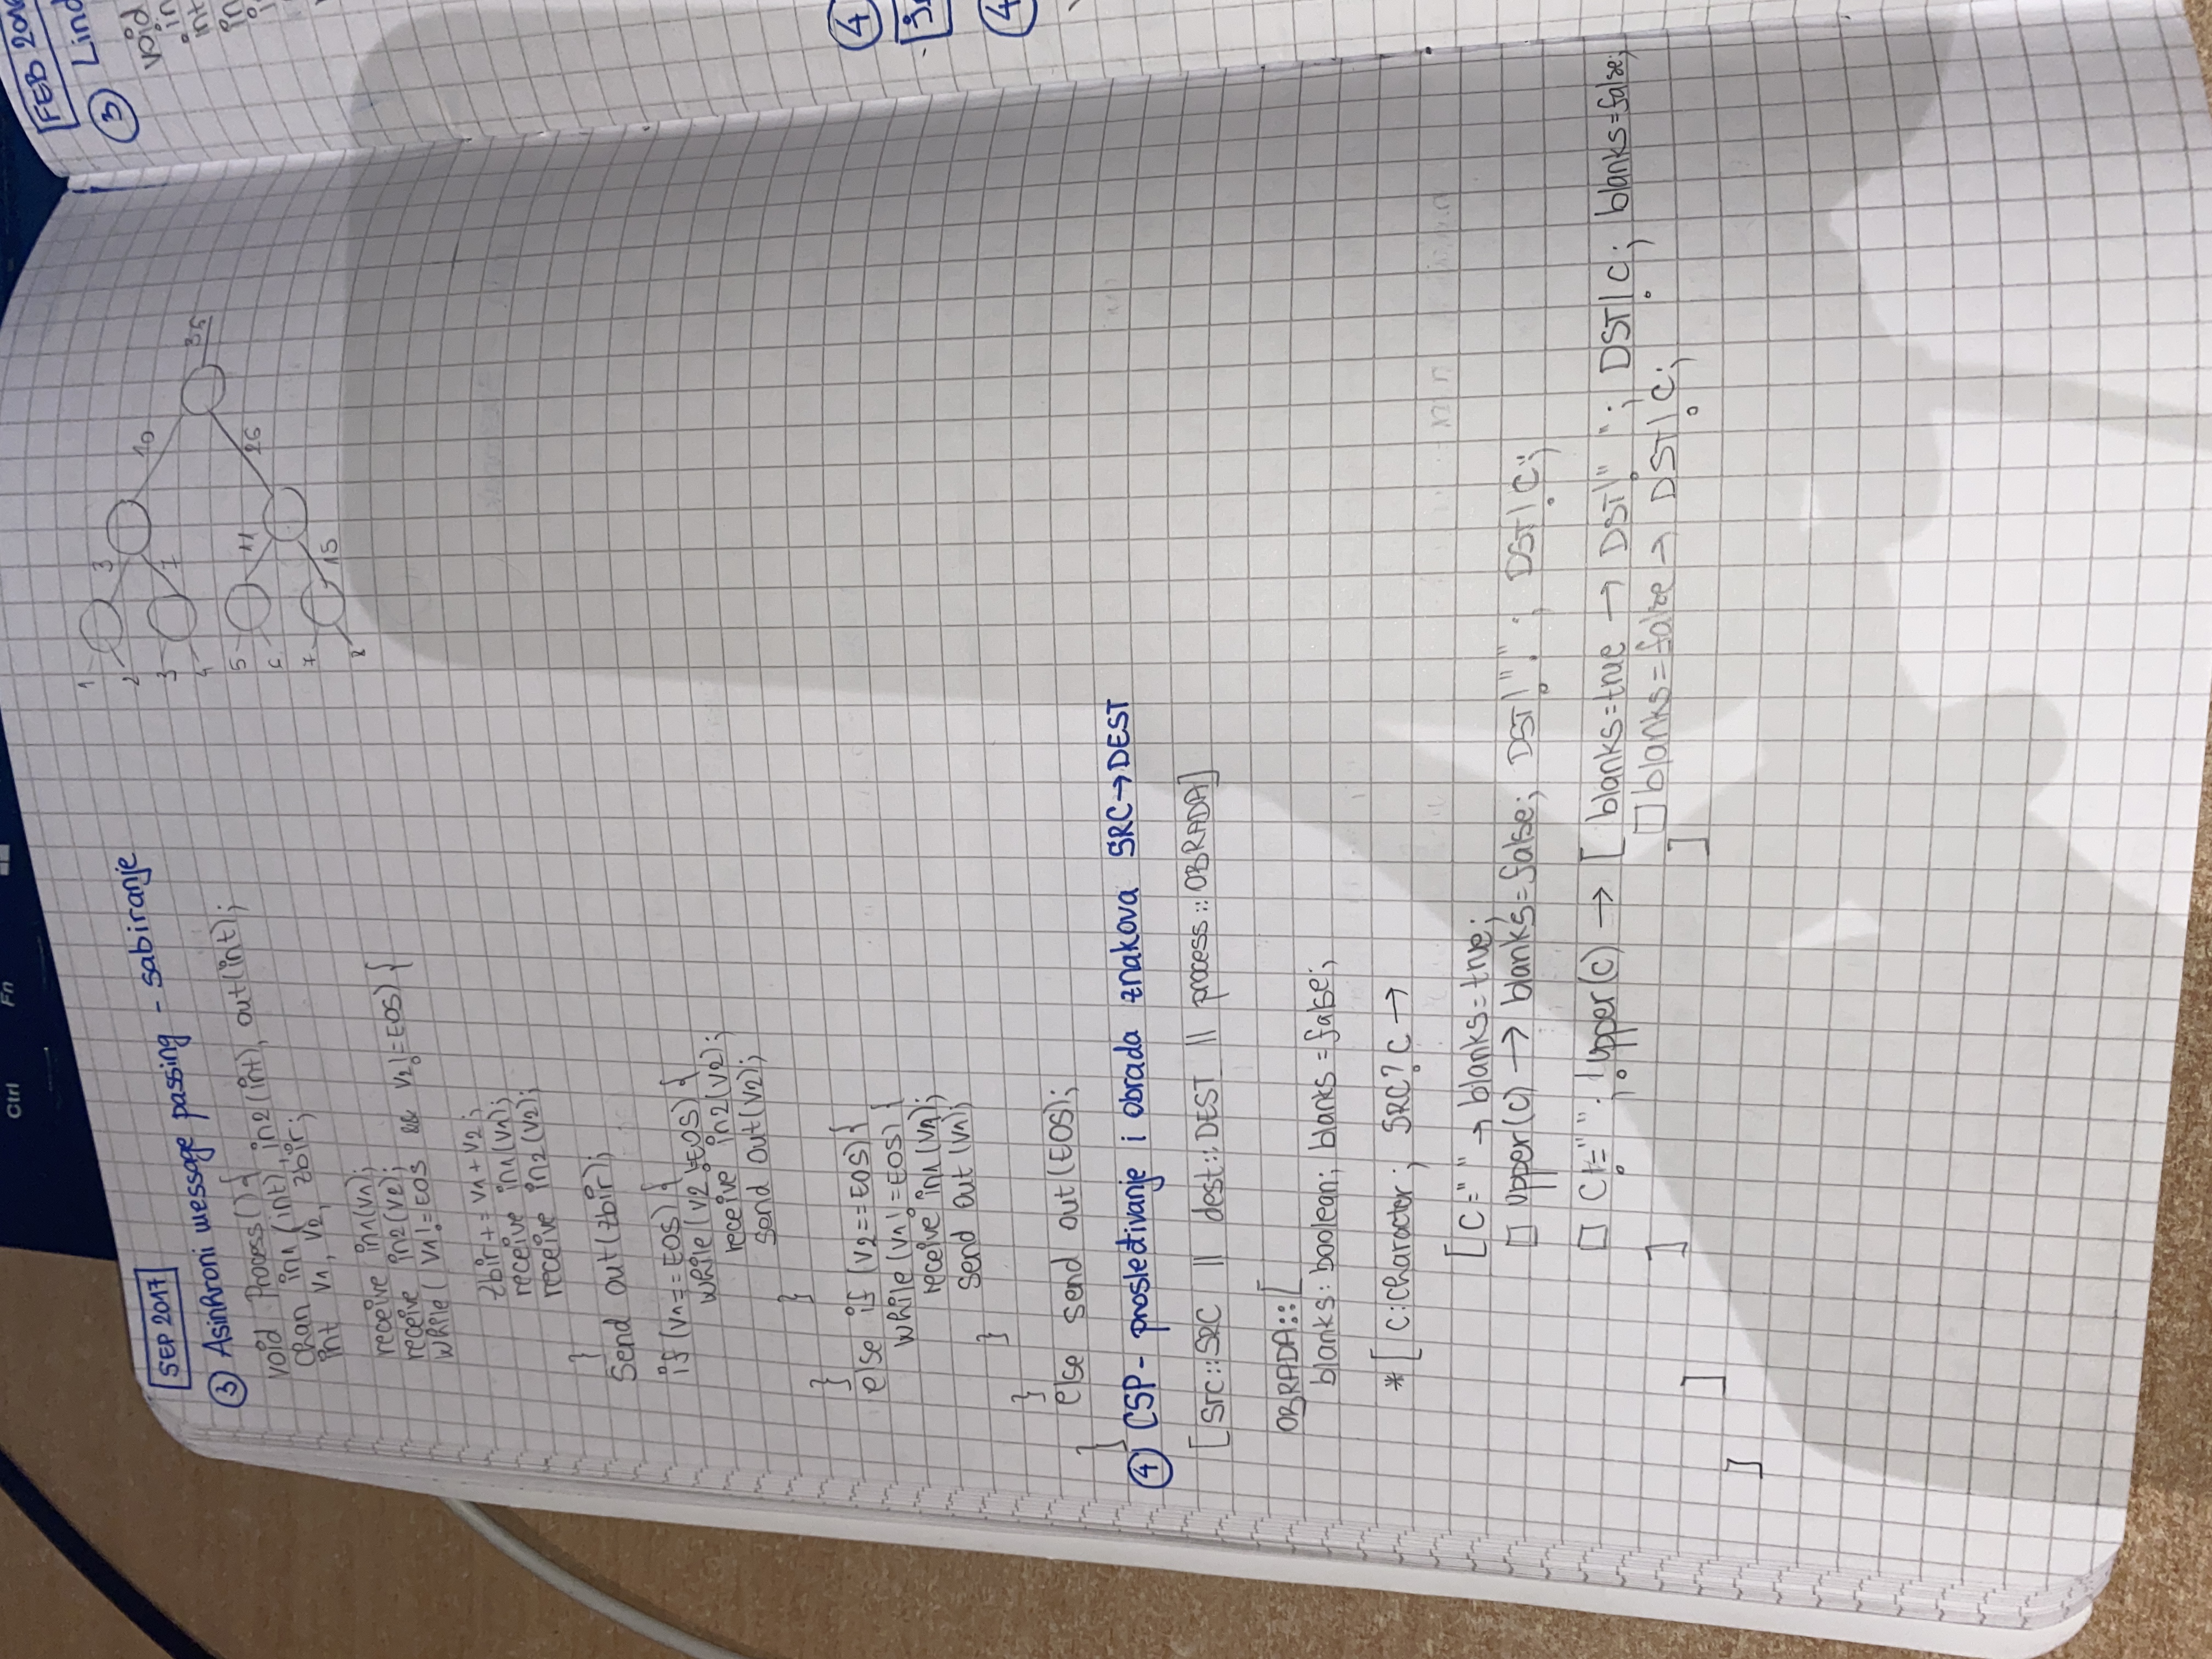 Ctrl
Fn
SEP 2017
③ Asinhroni message passing - sabiranje
void Process() {
chan in1 (int), in2 (int), out(int);
int v1, v2, zbir;
receive in1(v1);
receive in2(v2);
while( v1!=EOS && v2!=EOS) {
zbir += v1+v2;
receive in1(v1);
receive in2(v2);
}
Send out(zbir);
if (v1==EOS) {
while(v2!=EOS) {
receive in2(v2);
send out(v2);
}
}
else if (v2==EOS){
while(v1!=EOS) {
receive in1(v1);
send out (v1);
}
}
else send out(EOS);
}
1
2
3
4
5
6
7
8
3
7
11
15
10
26
36
④ CSP- prosleđivanje i obrada znakova SRC→DEST
[ src::SRC || dest::DEST || process::OBRADA]
OBRADA::[
blanks: boolean; blanks=false;
*[ c:character; SRC?c →
[c=" " → blanks=true;
□ upper(c) → blanks=false; DST!"."; DST!c;
□ c!=" "; !upper(c) → [ blanks=true → DST!" "; DST!c; blanks=false;
□ blanks=false → DST!c;
]
]
]
]
FEB
③ Lind
void
in
int
in
④
④